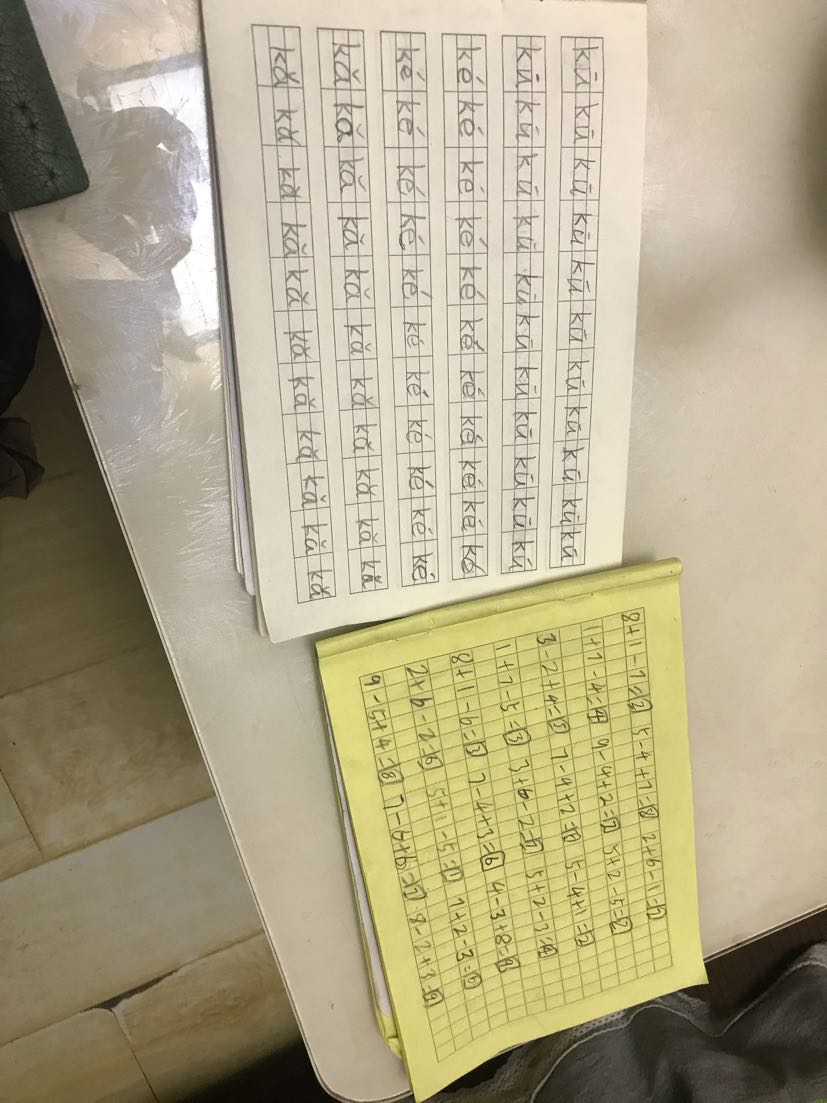 kū kū kū kū kū kū kū kū kū kū kū
kū kū kū kū kū kū kū kū kū kū kū
ké ké ké ké ké ké ké ké ké ké ké
ké ké ké ké ké ké ké ké ké ké ké
kǎ kǎ kǎ kǎ kǎ kǎ kǎ kǎ kǎ kǎ kǎ
kǎ kǎ kǎ kǎ kǎ kǎ kǎ kǎ kǎ kǎ kǎ
8+1-7=2 5-4+7=8 2+6-1=7
1+7-4=4 9-4+2=7 5+2-5=2
3-2+4=5 7-4+2=5 5-4+1=2
1+7-5=3 3+6-2=7 5+2-3=4
8+1-6=3 7-4+3=6 4-3+8=9
2+6-2=6 5+1-5=1 7+2-3=6
9-5+4=8 7-6+6=7 8-2+3=9